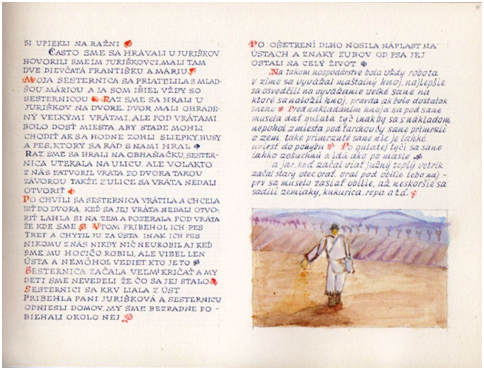 SI UPIEKLI NA RAŽNI
ČASTO SME SA HRÁVALI U JURIŠKOV
HOVORILI SME IM JURIŠKOVCI. MALI TAM
DVE DIEVČATÁ FRANTIŠKU A MÁRIU
MOJA SESTERNICA SA PRIATELILA S MLAD-
ŠOU MÁRIOU A JA SOM IŠIEL VŽDY SO
SESTERNICOU RAZ SME SA HRALI U
JURIŠKOV NA DVORE. DVOR MALI OHRADE-
NÝ VELKÝMI VRÁTMI, ALE POD VRÁTAMI
BOLO DOSŤ MIESTA, ABY STADE MOHLI
CHODIŤ AK SA HODNE ZOHLI SLIEPKY, HUSY
A PES, KTORÝ SA RÁD S NAMI HRAL
RAZ SME SA HRALI NA OBHAŇAČKU, SESTER-
NICA UTEKALA NA ULICU, ALE VOĽAKTO
Z NÁS ZATVORIL VRÁTA ZO DVORA TAKOU
ZÁVOROU TAKŽE Z ULICE SA VRÁTA NEDALI
OTVORIŤ
PO CHVÍLI SA SESTERNICA VRÁTILA A CHCELA
ÍSŤ DO DVORA, KEĎ SA JEJ VRÁTA NEDALI OTVO-
RIŤ LAHLA SI NA ZEM A POZERALA POD VRÁTA
ŽE KDE SME VTOM PRIBEHOL ICH PES
TREF A CHYTIL JU ZA ÚSTA INAK ICH PES
NIKOMU Z NÁS NIKDY NIČ NEUROBIL AJ KEĎ
SME MU HOCIČO ROBILI, ALE VIDEL LEN
ÚSTA A NEMOHOL VEDIEŤ KTO JE TO
SESTERNICA ZAČALA VEĽMI KRIČAŤ A MY
DETI SME NEVEDELI ŽE ČO SA JEJ STALO
SESTERNICI SA KRV LIALA Z ÚST
PRIBEHLA PANI JURIŠKOVÁ A SESTERNICU
ODNIESLI DOMOV, MY SME BEZRADNE PO-
BIEHALI OKOLO NEJ
PO OŠETRENÍ DLHO NOSILA NÁPLASŤ NA
ÚSTACH A ZNAKY ZUBOV OD PSA JEJ
OSTALI NA CELÝ ŽIVOT
Na takom hospodárstve bola vždy robota
v zime sa vyvážal maštalný hnoj, najlepšie
sa osvedčili na vyvážanie veľké sane na
ktoré sa naložil hnoj, pravda ak bolo dostatok
snehu Pred nakladaním hnoja sa pod sane
musela dať guľatá tyč inakby sa s nákladom
nepohol z miesta pod ťarchou by sane primrzli
o zem, také primrznuté sane nie je ľahké
uviesť do pohybu Po guľatej tyči sa sane
ľahko zošuchnú a idú ako po masle
a jar, keď začal viať južný teplý vetrík
začal starý otec orať, oral pod obilie lebo naj-
prv sa muselo zasiať obilie, až neskoršie sa
sadili zemiaky, kukurica, repa a t.ď.